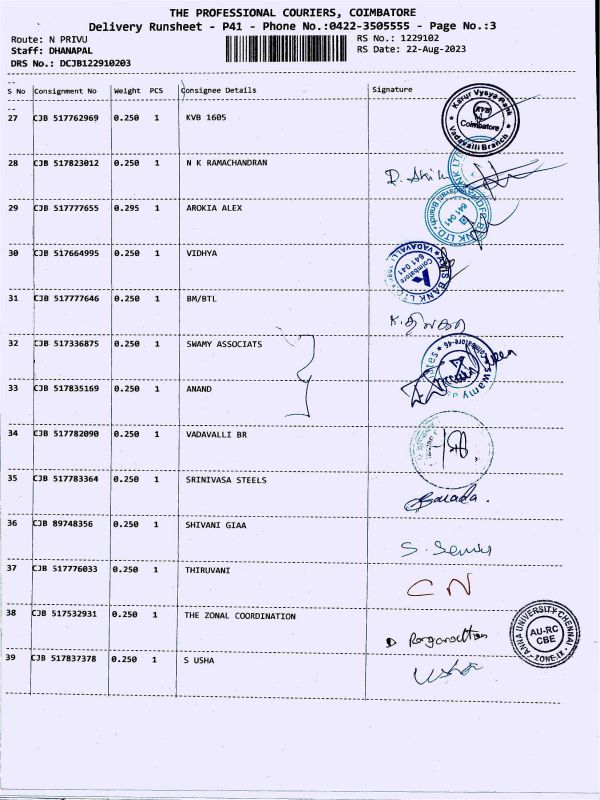 THE PROFESSIONAL COURIERS, COIMBATORE
Delivery Runsheet - P41 - Phone No.:0422-3505555 - Page No.:3
Route: N PRIVU RS No.: 1229102
Staff: DHANAPAL RS Date: 22-Aug-2023
DRS No.: DCJB122910203
S No Consignment No Weight PCS Consignee Details Signature
27 CJB 517762969 0.250 1 KVB 1605
Karur Vysya Bank
KVB
Coimbatore
Vadavalli Branch
28 CJB 517823012 0.250 1 N K RAMACHANDRAN
29 CJB 517777655 0.295 1 AROKIA ALEX
641 041
30 CJB 517664995 0.250 1 VIDHYA
AXIS BANK LTD
VADAVALLI
Coimbatore
641 041
31 CJB 517777646 0.250 1 BM/BTL
32 CJB 517336875 0.250 1 SWAMY ASSOCIATS
Coimbatore-46
33 CJB 517835169 0.250 1 ANAND
34 CJB 517782090 0.250 1 VADAVALLI BR
35 CJB 517783364 0.250 1 SRINIVASA STEELS
36 CJB 89748356 0.250 1 SHIVANI GIAA
37 CJB 517776033 0.250 1 THIRUVANI
C N
38 CJB 517532931 0.250 1 THE ZONAL COORDINATION
ANNA UNIVERSITY CHENNAI
AU-RC
CBE
ZONE-IX
39 CJB 517837378 0.250 1 S USHA
Usha